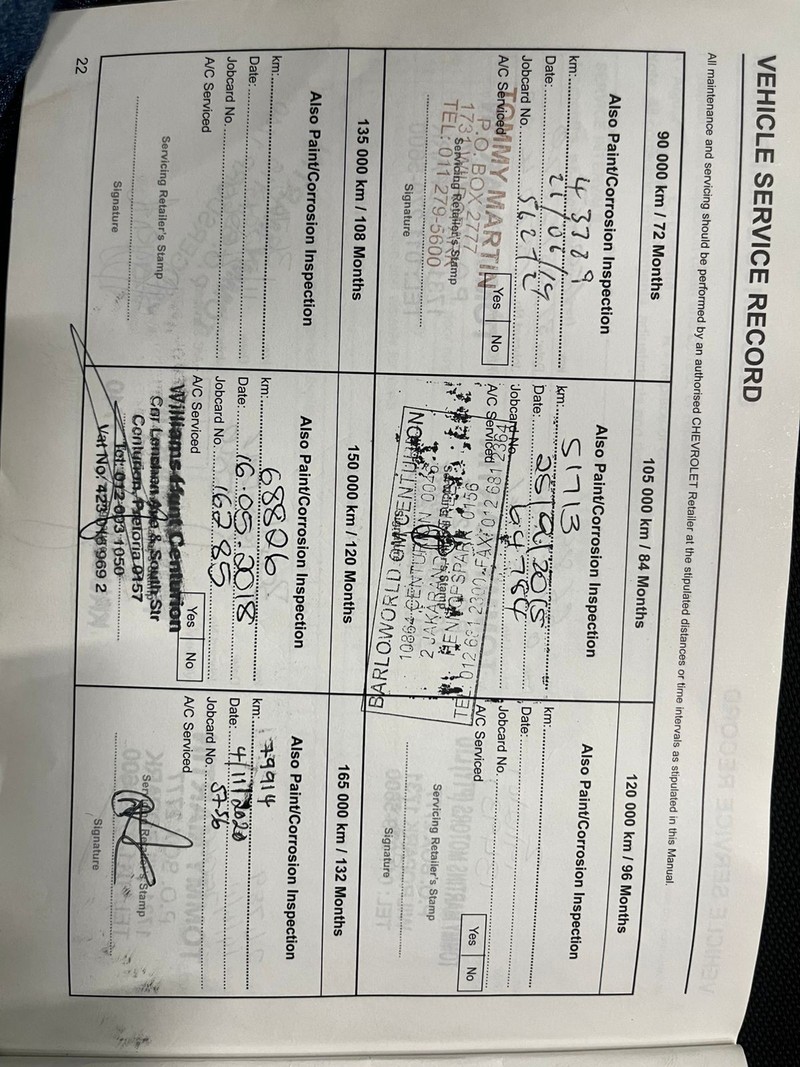 VEHICLE SERVICE RECORD
All maintenance and servicing should be performed by an authorised CHEVROLET Retailer at the stipulated distances or time intervals as stipulated in this Manual.
90 000 km / 72 Months
Also Paint/Corrosion Inspection
km: 43789
Date: 21/06/14
Jobcard No. 562727
A/C Serviced Yes No
TOMMY MARTIN
P.O. BOX 2777
Servicing Retailer's Stamp
TEL: 011 279-5600
Signature
105 000 km / 84 Months
Also Paint/Corrosion Inspection
km: 51713
Date: 2015
Jobcard No. 64784
A/C Serviced
BARLOWORLD GM CENTURION
Servicing Retailer's Stamp
120 000 km / 96 Months
Also Paint/Corrosion Inspection
km:
Date:
Jobcard No.
A/C Serviced Yes No
Servicing Retailer's Stamp
Signature
135 000 km / 108 Months
Also Paint/Corrosion Inspection
km:
Date:
Jobcard No.
A/C Serviced
Servicing Retailer's Stamp
Signature
150 000 km / 120 Months
Also Paint/Corrosion Inspection
km: 68826
Date: 16.05.2018
Jobcard No. 16285
A/C Serviced Yes No
Williams Hunt Centurion
Cnr Lenchen Ave & South Str
Centurion, Pretoria 0157
Tel: 012-603 1050
Vat No: 969 2
165 000 km / 132 Months
Also Paint/Corrosion Inspection
km: 79914
Date: 4/11/2020
Jobcard No. 5756
A/C Serviced
Servicing Retailer's Stamp
Signature
22